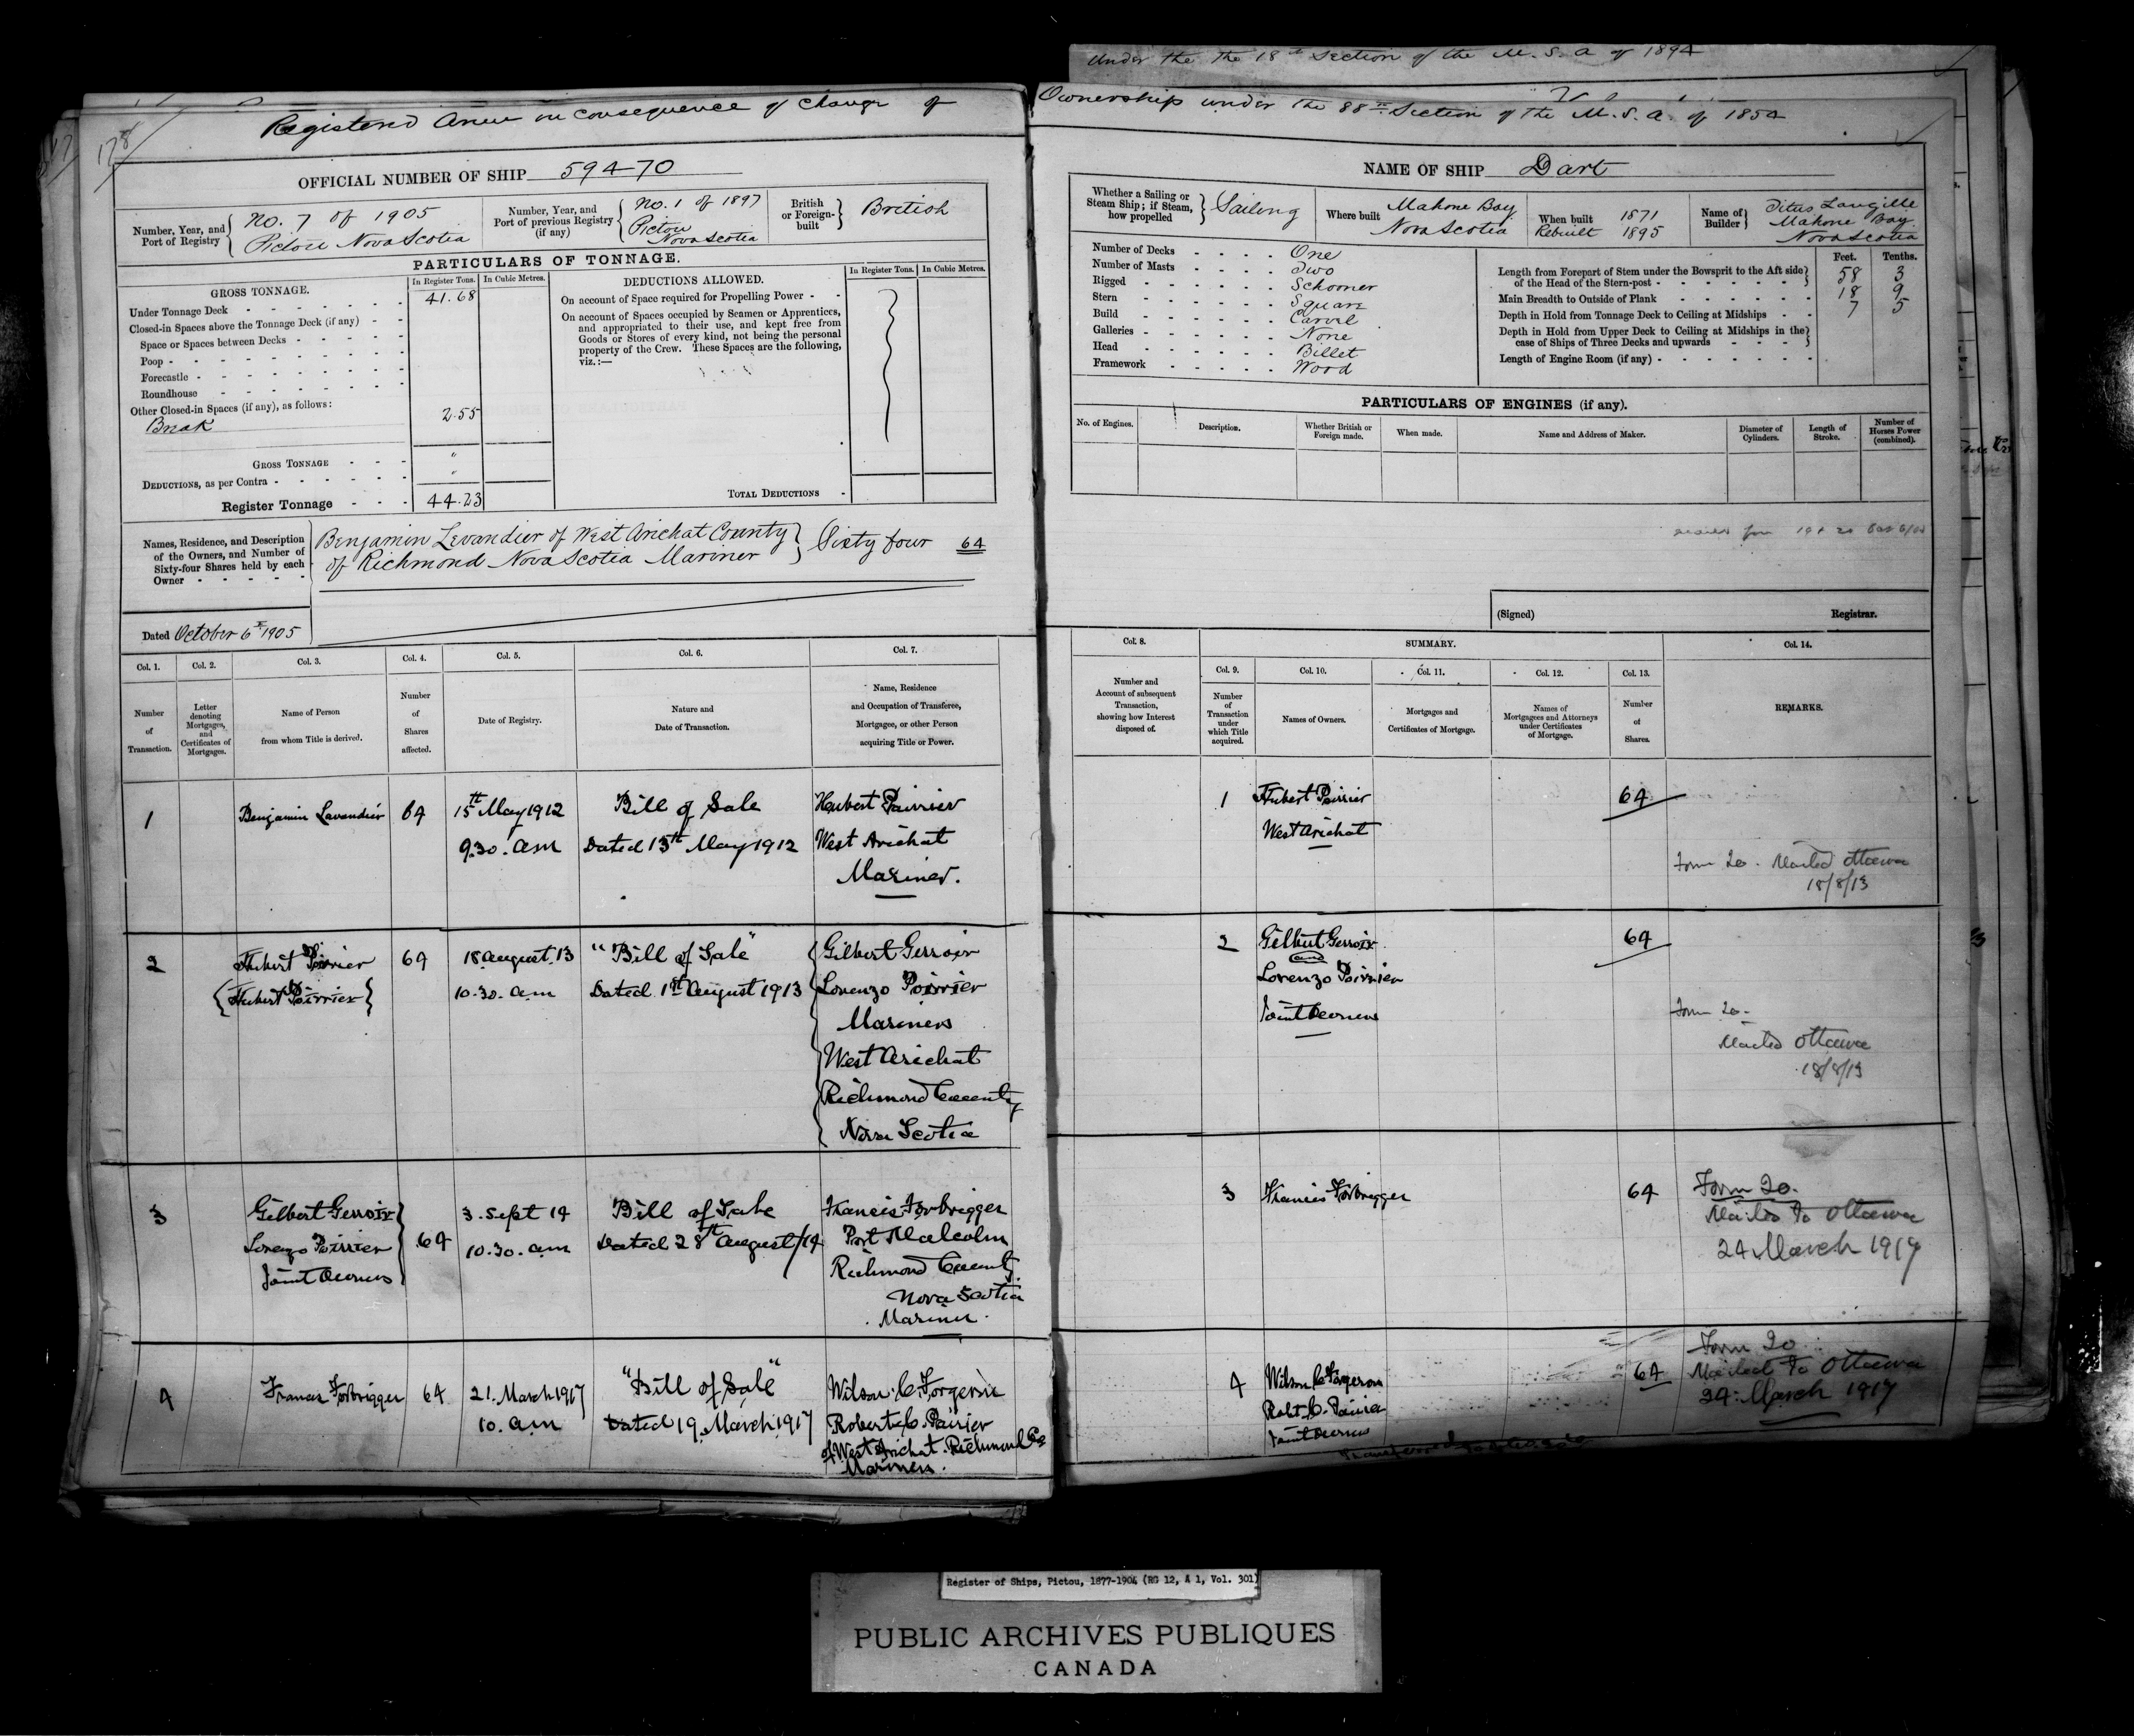 Under the the 18th Section of the M. S. A of 1894
Registered Anew in consequence of Change of Ownership under the 88th Section of the M. S. A. of 1854
178
OFFICIAL NUMBER OF SHIP 59470
Number, Year, and Port of Registry { No. 7 of 1905
Pictou Nova Scotia
Number, Year, and Port of previous Registry (if any) { No. 1 of 1897
Pictou
Nova Scotia
British or Foreign-built } British
PARTICULARS OF TONNAGE.
GROSS TONNAGE.
In Register Tons. In Cubic Metres.
Under Tonnage Deck 41.68
Closed-in Spaces above the Tonnage Deck (if any)
Space or Spaces between Decks
Poop
Forecastle
Roundhouse
Other Closed-in Spaces (if any), as follows:
Break 2.55
GROSS TONNAGE "
DEDUCTIONS, as per Contra "
Register Tonnage 44.23
DEDUCTIONS ALLOWED.
In Register Tons. In Cubic Metres.
On account of Space required for Propelling Power
On account of Spaces occupied by Seamen or Apprentices,
and appropriated to their use, and kept free from
Goods or Stores of every kind, not being the personal
property of the Crew. These Spaces are the following,
viz.:—
TOTAL DEDUCTIONS
Names, Residence, and Description
of the Owners, and Number of
Sixty-four Shares held by each
Owner
Benjamin Levandier of West Arichat County
of Richmond Nova Scotia Mariner } Sixty four 64
Dated October 6th 1905
NAME OF SHIP Dart
Whether a Sailing or Steam Ship; if Steam, how propelled } Sailing
Where built Mahone Bay
Nova Scotia
When built 1871
Rebuilt 1895
Name of Builder } Titus Langille
Mahone Bay
Nova Scotia
Number of Decks One
Number of Masts Two
Rigged Schooner
Stern Square
Build Carvel
Galleries None
Head Billet
Framework Wood
Feet. Tenths.
Length from Forepart of Stem under the Bowsprit to the Aft side
of the Head of the Stern-post 58 3
Main Breadth to Outside of Plank 18 9
Depth in Hold from Tonnage Deck to Ceiling at Midships 7 5
Depth in Hold from Upper Deck to Ceiling at Midships in the
case of Ships of Three Decks and upwards
Length of Engine Room (if any)
PARTICULARS OF ENGINES (if any).
No. of Engines.
Description.
Whether British or Foreign made.
When made.
Name and Address of Maker.
Diameter of Cylinders.
Length of Stroke.
Number of Horses Power (combined).
(Signed) Registrar.
Col. 1. Col. 2. Col. 3. Col. 4. Col. 5. Col. 6. Col. 7.
Number of Transaction.
Letter denoting Mortgages, and Certificates of Mortgages.
Name of Person from whom Title is derived.
Number of Shares affected.
Date of Registry.
Nature and Date of Transaction.
Name, Residence and Occupation of Transferee, Mortgagee, or other Person acquiring Title or Power.
Col. 8.
SUMMARY.
Col. 14.
Col. 9. Col. 10. Col. 11. Col. 12. Col. 13.
Number and Account of subsequent Transaction, showing how Interest disposed of.
Number of Transaction under which Title acquired.
Names of Owners.
Mortgages and Certificates of Mortgage.
Names of Mortgagees and Attorneys under Certificates of Mortgage.
Number of Shares.
REMARKS.
1 Benjamin Lavandier 64 15th May 1912 Bill of Sale Hubert Poirrier
9.30. am Dated 13th May 1912 West Arichat
Mariner.
1 Hubert Poirrier 64
West Arichat
Form 20. Mailed Ottawa
18/8/13
2 Hubert Poirrier 64 18 August. 13 "Bill of Sale" Gilbert Gerroir
{Hubert Poirrier} 10.30. am Dated 1st August 1913 Lorenzo Poirrier
Mariners
West Arichat
Richmond County
Nova Scotia
2 Gilbert Gerroir 64
and
Lorenzo Poirrier
Joint Owners
Form 20.
Mailed Ottawa
18/8/13
3 Gilbert Gerroir 64 3. Sept 14 Bill of Sale Francis Forbrigger
Lorenzo Poirrier 10.30. am Dated 28th August/14 Port Malcolm
Joint Owners Richmond County
Nova Scotia
Mariner.
3 Francis Forbrigger 64
Form 20.
Mailed to Ottawa
24 March 1917
4 Francis Forbrigger 64 21. March 1917 "Bill of Sale" Wilson. C. Forgeron
10. am Dated 19. March 1917 Robert C. Poirier
of West Arichat. Richmond Co
Mariners.
4 Wilson C Forgeron 64
Robt. C. Poirier
Joint Owners
Form 20
Mailed to Ottawa
24. March 1917
Register of Ships, Pictou, 1877-1904 (RG 12, A 1, Vol. 301)
PUBLIC ARCHIVES PUBLIQUES
CANADA